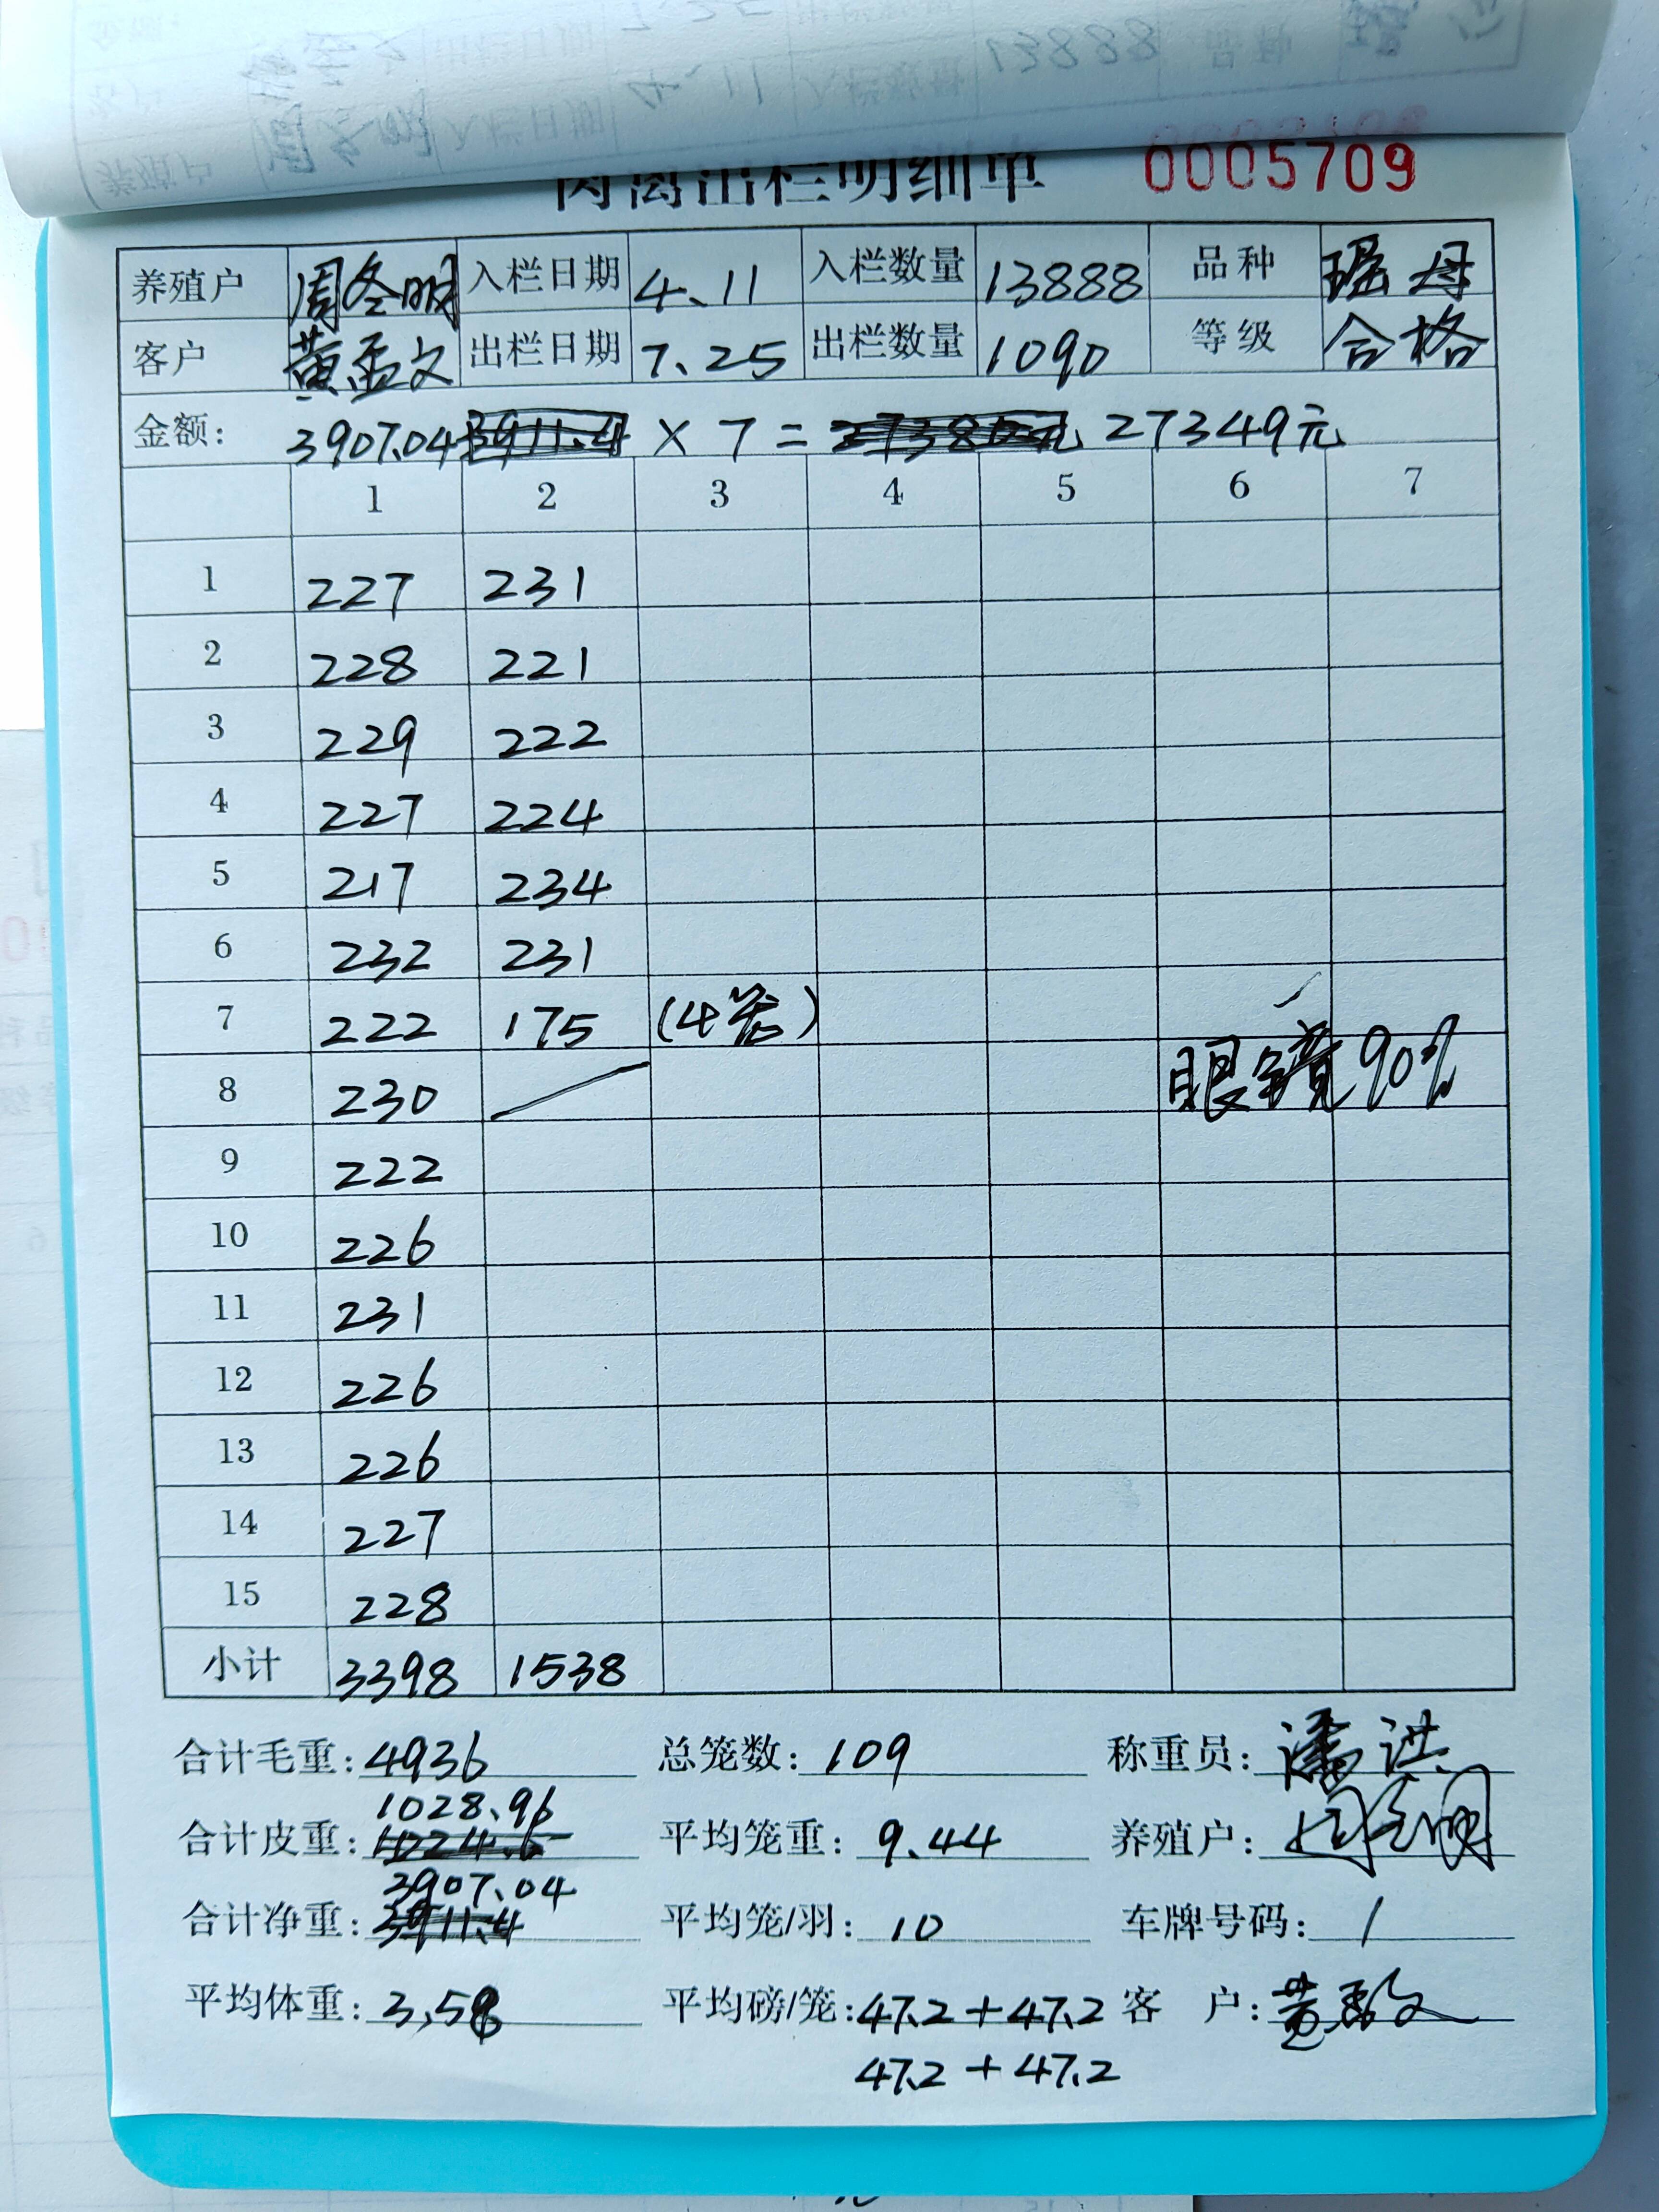 肉禽出栏明细单 0005709
养殖户 周冬明 入栏日期 4、11 入栏数量 13888 品种 瑶母
客户 黄孟文 出栏日期 7、25 出栏数量 1090 等级 合格
金额: 3907.04 3911.4 × 7 = 27349元
1 2 3 4 5 6 7
1 227 231
2 228 221
3 229 222
4 227 224
5 217 234
6 232 231
7 222 175 (4笼)
8 230 眼镜90%
9 222
10 226
11 231
12 226
13 226
14 227
15 228
小计 3398 1538
合计毛重: 4936 总笼数: 109 称重员: 潘洪
1028.96
合计皮重: 1024.6 平均笼重: 9.44 养殖户: 周冬明
3907.04
合计净重: 3911.4 平均笼/羽: 10 车牌号码: /
平均体重: 3.58 平均磅/笼: 47.2+47.2 客 户: 黄孟文
47.2+47.2